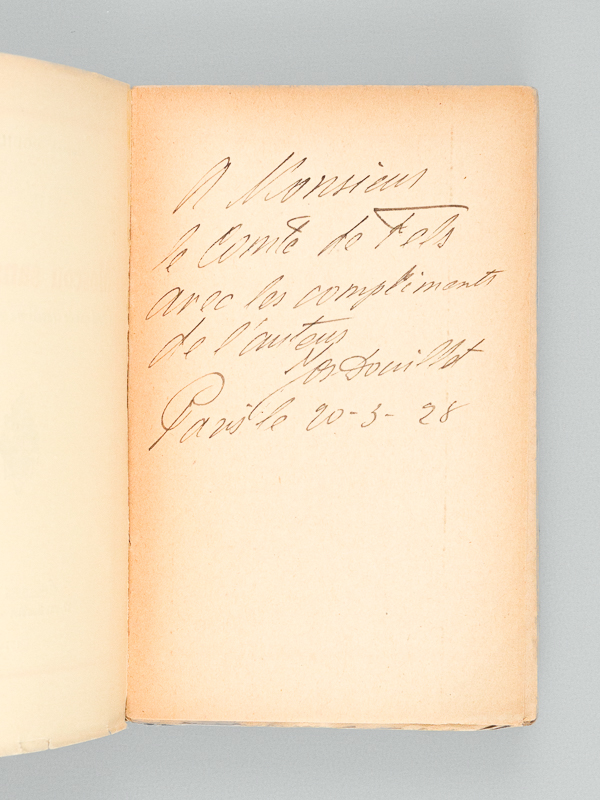 A Monsieur
le Comte de Fels
avec les compliments
de l'auteur
Jos Douillet
Paris le 20-3-28